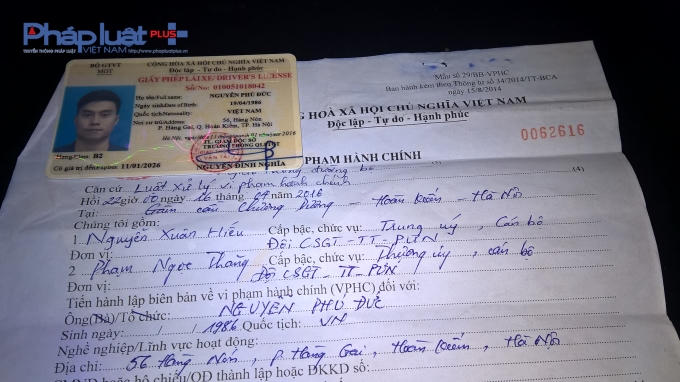 Pháp luật PLUS+
TRUYỀN THÔNG PHÁP LUẬT VIỆT NAM
BỘ GTVT
MOT
CỘNG HÒA XÃ HỘI CHỦ NGHĨA VIỆT NAM
Độc lập - Tự do - Hạnh phúc
GIẤY PHÉP LÁI XE/DRIVER'S LICENSE
Số/No: 010051018042
NGUYỄN PHÚ ĐỨC
Ngày sinh/Date of Birth: 19/04/1986
Quốc tịch/Nationality: VIỆT NAM
Nơi cư trú/Address: 56, Hàng Nón
P. Hàng Gai, Q. Hoàn Kiếm, TP. Hà Nội
2016
TL. GIÁM ĐỐC SỞ
TRƯỞNG PHÒNG QLPT
Hạng/Class: B2
Có giá trị đến/Expires: 11/01/2026
NGUYỄN ĐÌNH NGHĨA
Mẫu số 29/BB-VPHC
Ban hành kèm theo Thông tư số 34/2014/TT-BCA
ngày 15/8/2014
HOÀ XÃ HỘI CHỦ NGHĨA VIỆT NAM
Độc lập - Tự do - Hạnh phúc
0062616
PHẠM HÀNH CHÍNH
đường bộ (4)
Căn cứ Luật Xử lý vi phạm hành chính
Hồi 22 giờ 50 ngày 16 tháng 07 năm 2016
Tại: Gầm cầu Chương Dương - Hoàn Kiếm - Hà Nội
Chúng tôi gồm:
1. Nguyễn Xuân Hiếu Cấp bậc, chức vụ: Trung úy, Cán bộ
Đơn vị: Đội CSGT-TT-PƯN
2. Phạm Ngọc Thắng Cấp bậc, chức vụ: Thượng úy, cán bộ
Đơn vị: Đội CSGT-TT-PƯN
Tiến hành lập biên bản về vi phạm hành chính (VPHC) đối với:
Ông(Bà)/Tổ chức: NGUYỄN PHÚ ĐỨC
Sinh ngày / / 1986 Quốc tịch: VN
Nghề nghiệp/Lĩnh vực hoạt động:
Địa chỉ: 56 Hàng Nón, P. Hàng Gai, Hoàn Kiếm, Hà Nội
CMND hoặc hộ chiếu/QĐ thành lập hoặc ĐKKD số: